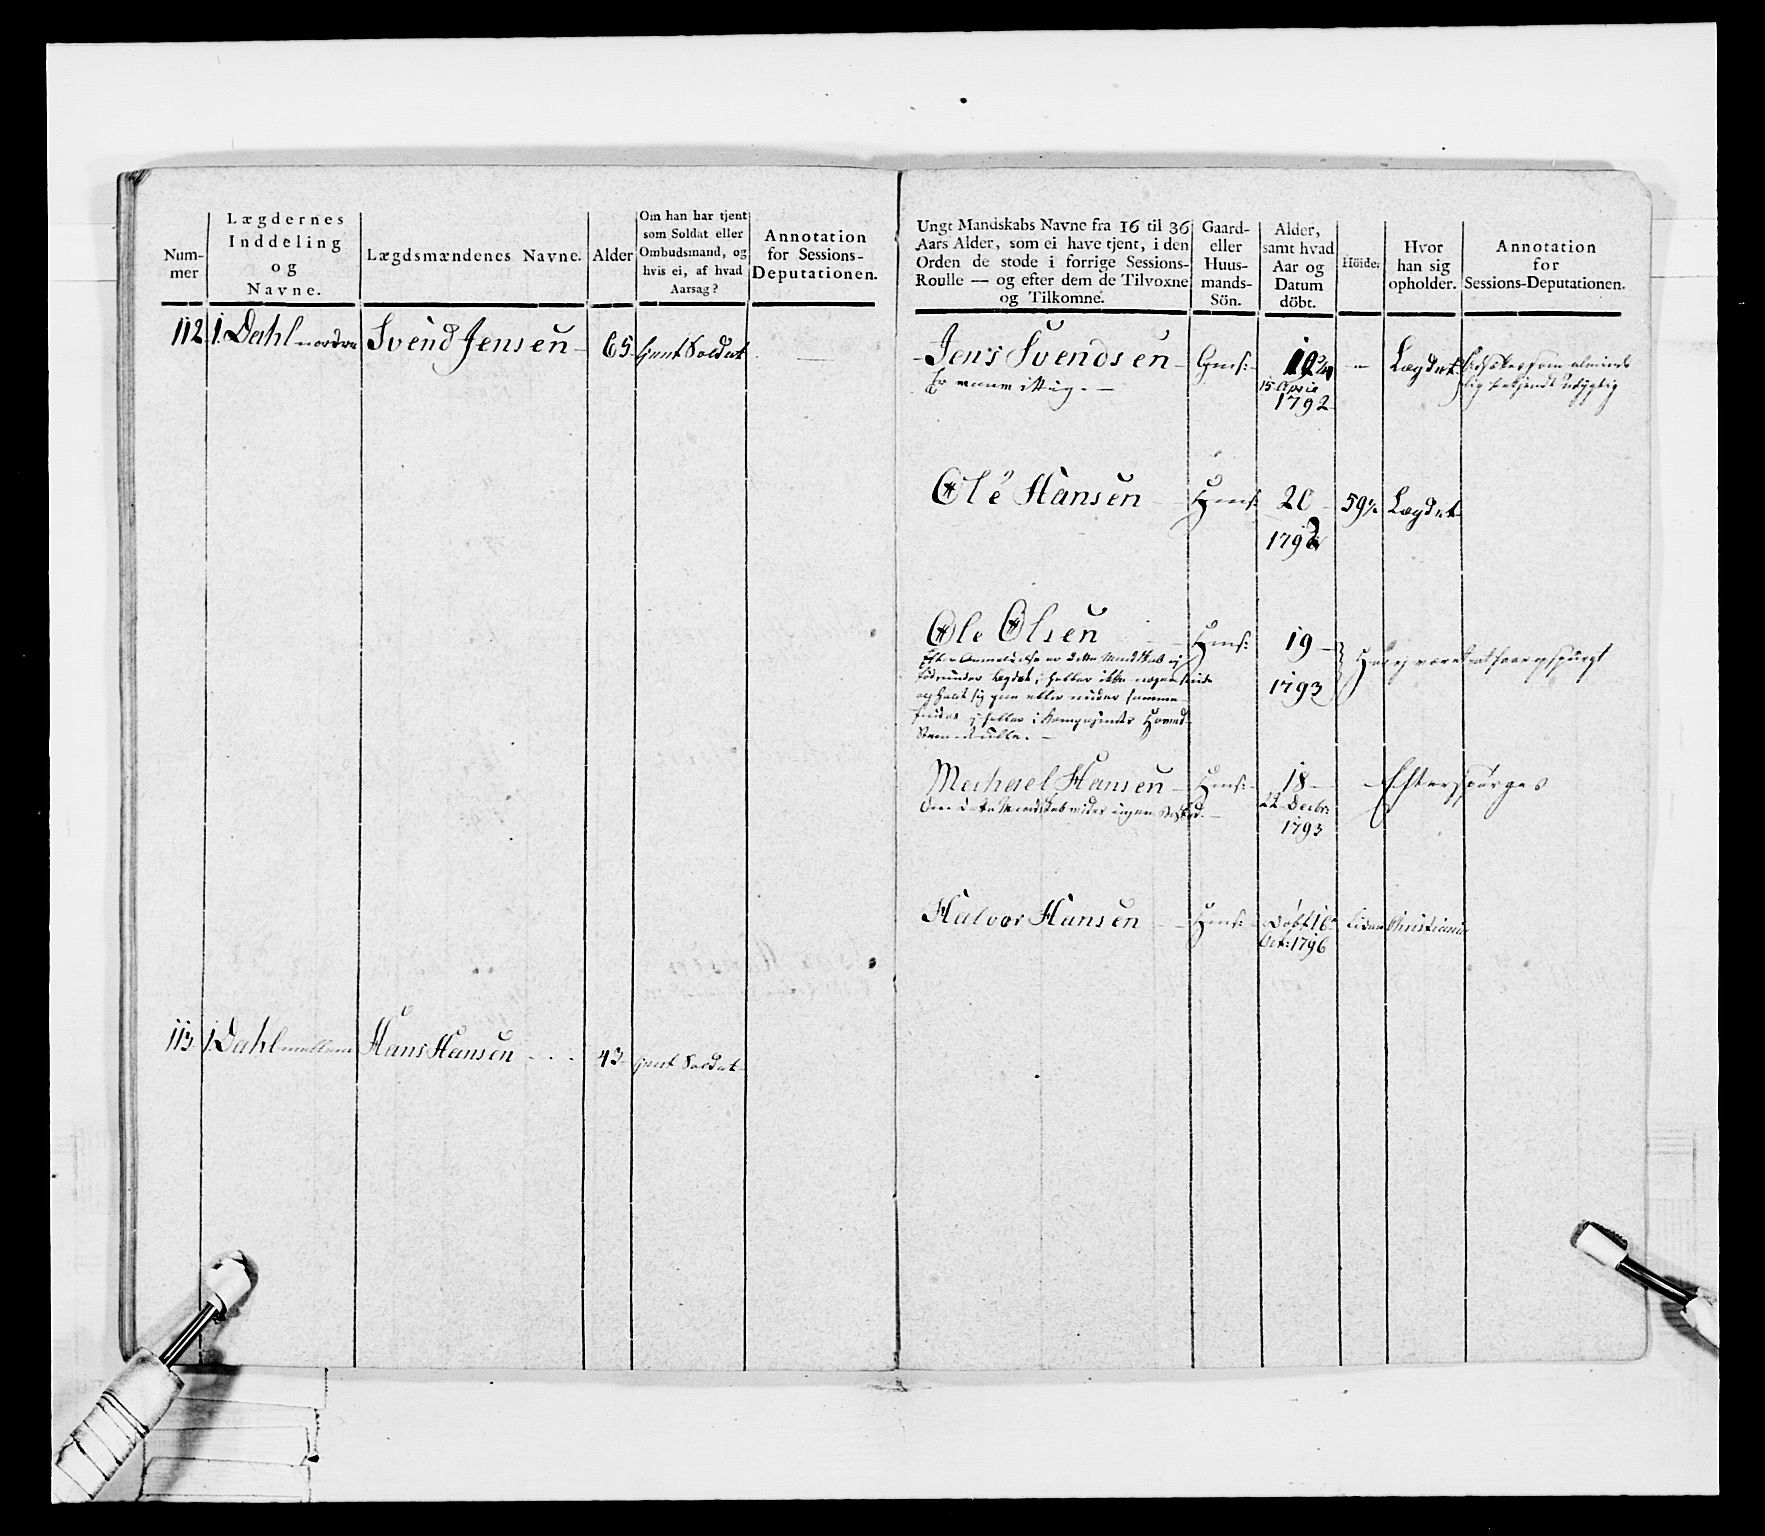 Num-
mer
Lægdernes
Inddeling
og
Navne.
Lægdsmændenes Navne.
Alder
Om han har tjent
som Soldat eller
Ombudsmand, og
hvis ei, af hvad
Aarsag?
Annotation
for Sessions-
Deputationen.
112. 1. Dahl nordre Svend Jensen 65 tjent Soldat
113. 1. Dahl mellem Hans Hansen 43 tjent Soldat
Ungt Mandskabs Navne fra 16 til 36
Aars Alder, som ei have tjent, i den
Orden de stode i forrige Sessions-
Roulle — og efter dem de Tilvoxne
og Tilkomne.
Gaard-
eller
Huus-
mands-
Sön.
Alder,
samt hvad
Aar og
Datum
döbt.
Höide.
Hvor
han sig
opholder.
Annotation
for
Sessions-Deputationen.
Jens Svendsen Gms: Lægdet
15 April
1792
Ole Hansen Hms: 20 59½ Lægdet
179
Ole Olsen Hms: 19
1793
Mechael Hansen Hms: 18 Efterspørges
22 Decbr:
1793
Halvor Hansen Hms: Döbt 16 liden Christiania
Oct: 1796